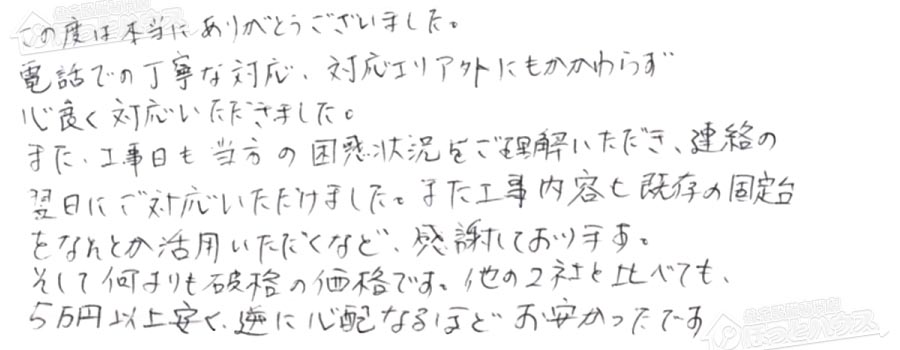 この度は本当にありがとうございました。
電話での丁寧な対応、対応エリアアウトにもかかわらず
心良く対応いただきました。
また、工事日も当方の困惑状況をご理解いただき、連絡の
翌日にご対応いただけました。また工事内容も既存の固定台
をなんとか活用いただくなど、感謝しております。
そして何よりも破格の価格です。他の2社と比べても、
5万円以上安く、逆に心配なるほどお安かったです